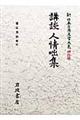 新日本古典文学大系 明治編
講談 人情咄集
岩波書店